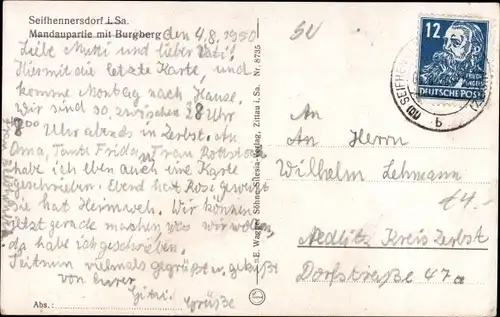 Seifhennersdorf i. Sa.
Mandaupartie mit Burgberg
den 4.8.1950
Liebe Mutti und lieber Vati!
Hiermit die letzte Karte, und
komme Montag nach Hause.
Wir sind so zwischen 8 Uhr
8 Uhr abends in Zerbst. An
Oma, Tante Frida, Frau
habe ich eben auch eine Karte
geschrieben. Ebend hat Rose geweint
Sie hat Heimweh. Wir können
jetzt gerade machen was wir wollen,
da habe ich geschrieben.
Seit nun vielmals gegrüßt u. geküßt
von Eurer
Grüße
Abs.:
E. Wagner Söhne Verlag, Zittau i. Sa. Nr. 8735
12
DEUTSCHE POST
SEIFHENNERSDORF
b
An
An Herrn
Wilhelm Lehmann
Nedlitz Kreis Zerbst
Dorfstraße 47a
€4.-